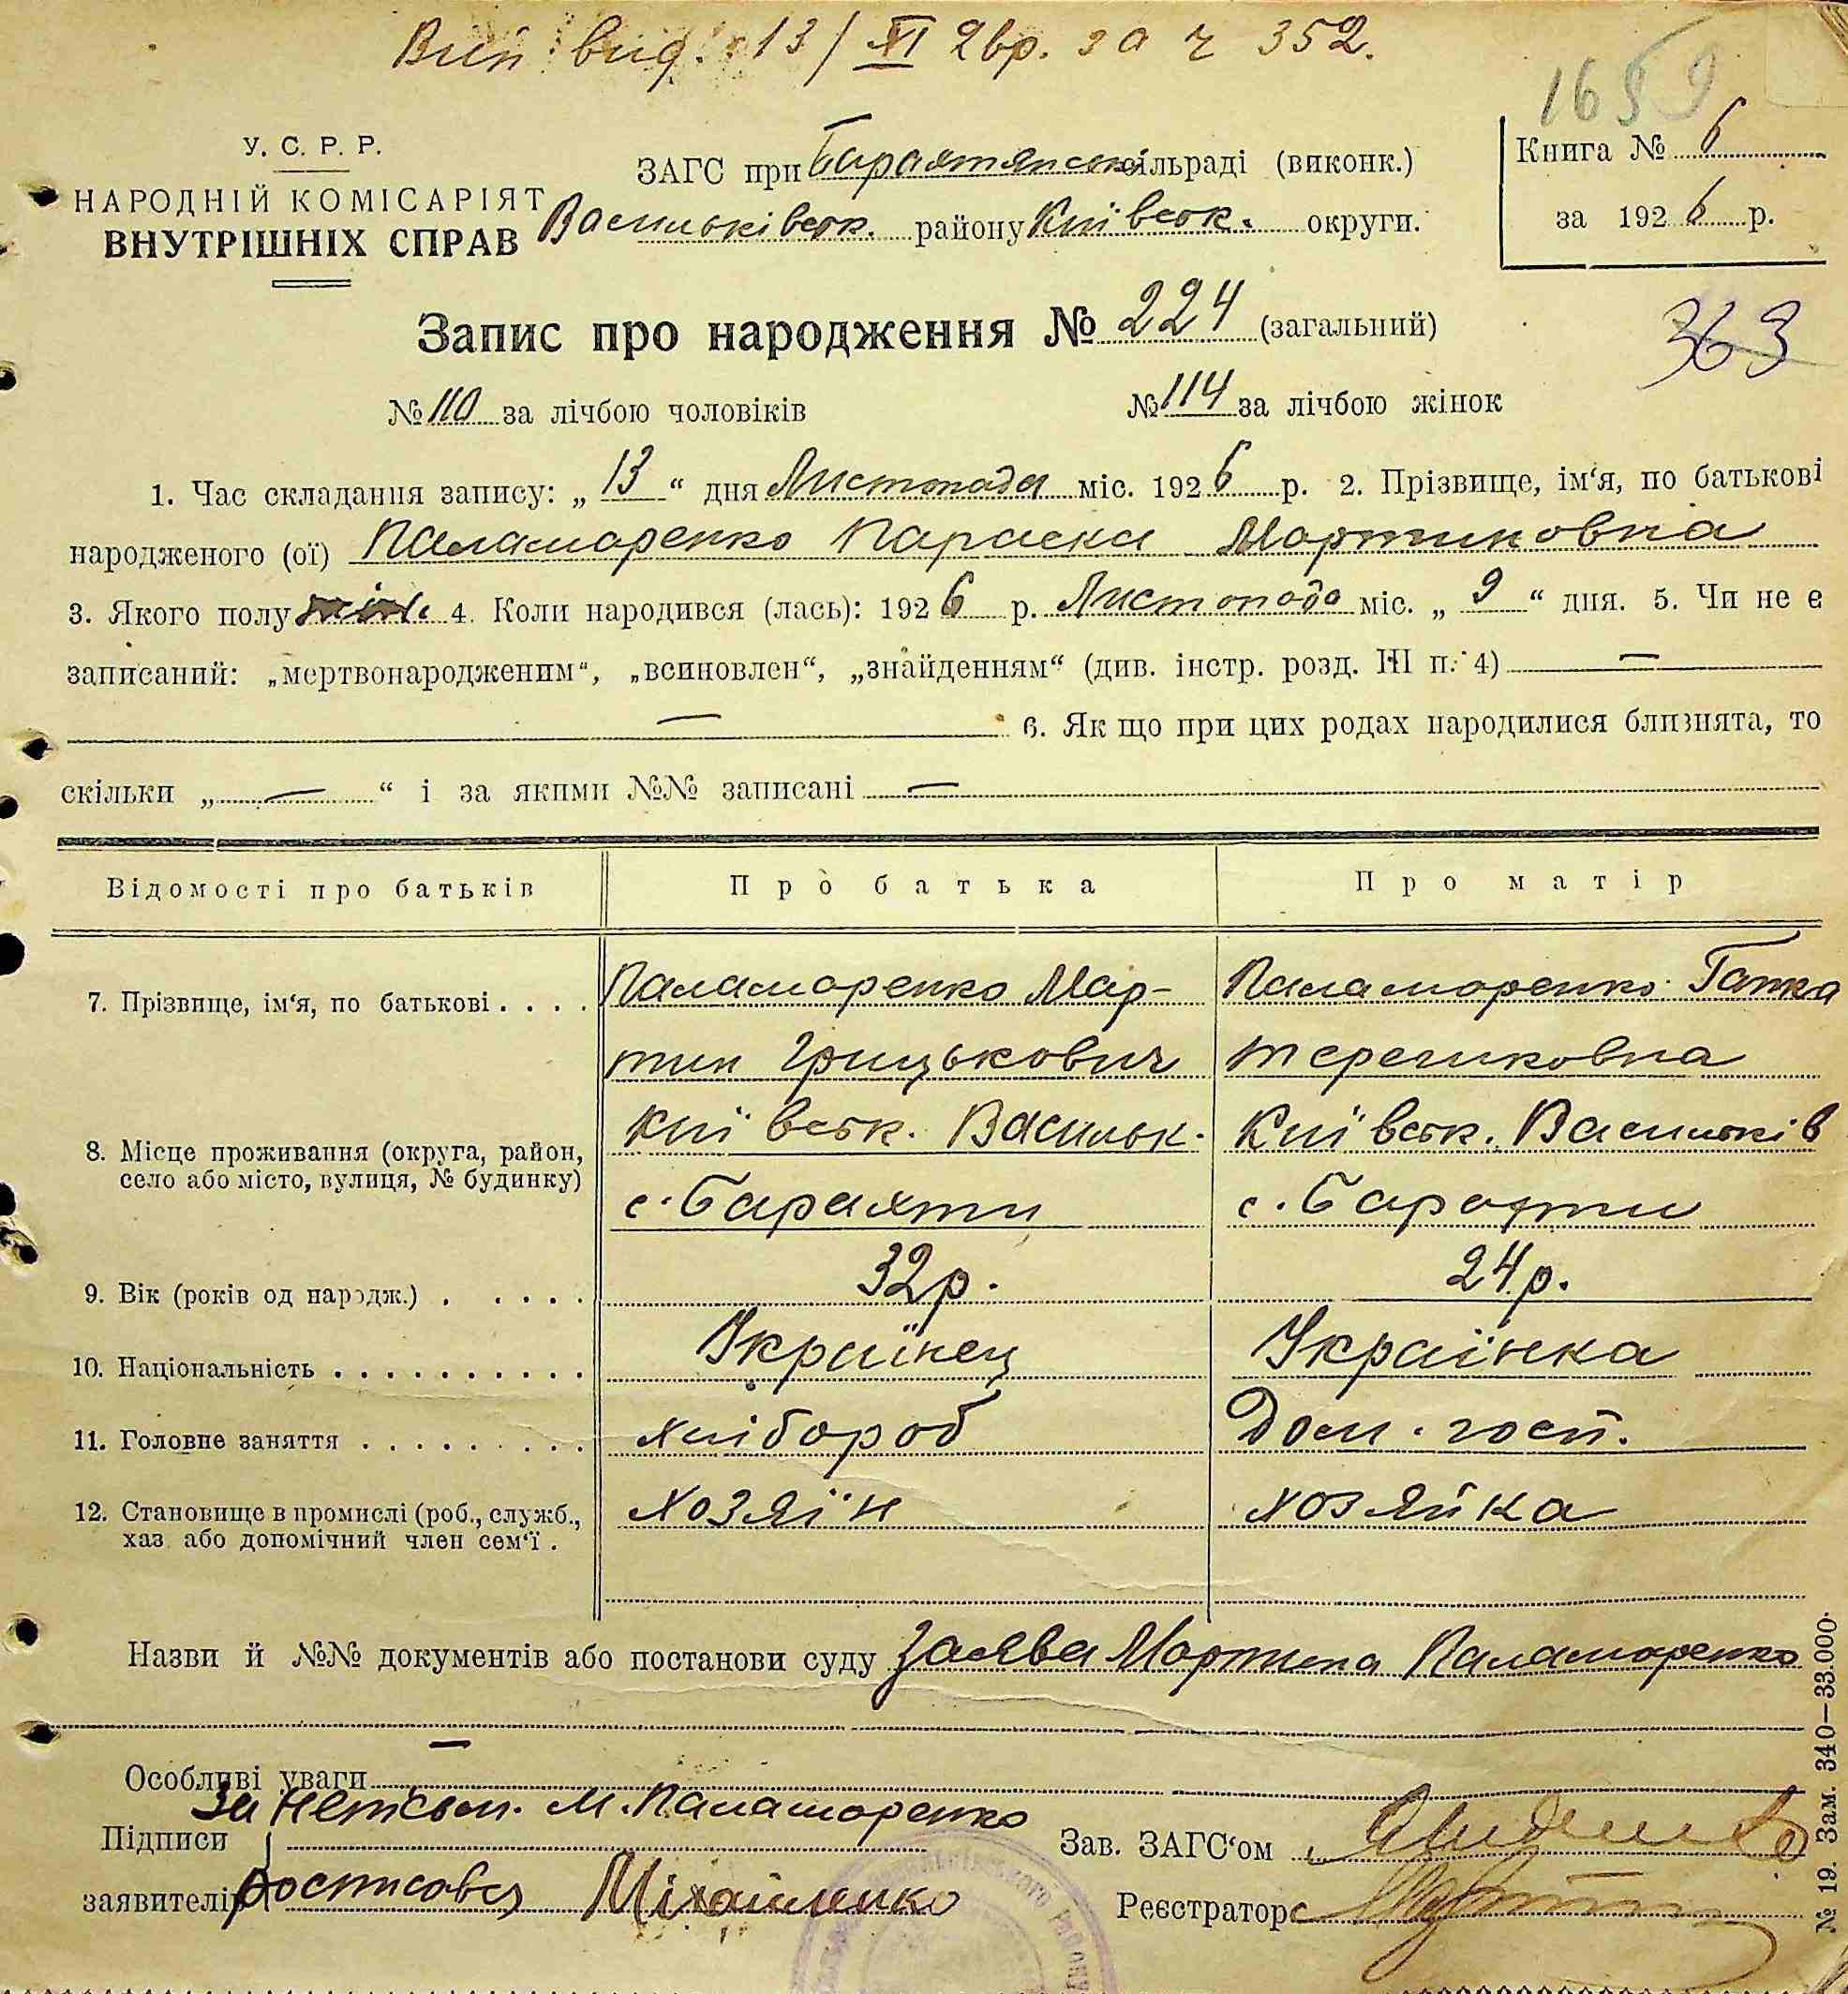 Вип вид. 13/XI 26р. за ч 352.
1659
У. С. Р. Р.
НАРОДНІЙ КОМІСАРІЯТ
ВНУТРІШНІХ СПРАВ
ЗАГС при Барахтянськ сільраді (виконк.)
Васильківськ. району Київськ. округи.
Книга № 6
за 1926 р.
Запис про народження № 224 (загальний)
363
№ 110 за лічбою чоловіків № 114 за лічбою жінок
1. Час складання запису: „ 13 “ дня Листопада міс. 1926 р. 2. Прізвище, ім‘я, по батькові
народженого (ої) Паламаренко Параска Мартиновна
3. Якого полу жін. 4. Коли народився (лась): 1926 р. Листопада міс. „ 9 “ дня. 5. Чи не є
записаний: „мертвонародженим“, „всиновлен“, „знайденням“ (див. інстр. розд. III п. 4) —
— 6. Як що при цих родах народилися близнята, то
скільки „ — “ і за якими №№ записані —
Відомості про батьків Про батька Про матір
7. Прізвище, ім‘я, по батькові . . . . Паламаренко Мар- Паламаренко Ганка
тин Грицькович Терешковна
8. Місце проживання (округа, район, Київськ. Васильк. Київськ. Васильків
село або місто, вулиця, № будинку) с. Барахти с. Барахти
9. Вік (років од народж.) . . . . . 32р. 24р.
10. Національність . . . . . . . . . . Українец Українка
11. Головне заняття . . . . . . . . . хлібороб Дом. госп.
12. Становище в промислі (роб., служб., хозяїн хозяйка
хаз. або допомічний член сем‘ї .
Назви й №№ документів або постанови суду Заява Мартина Паламаренко
Особливі уваги —
За неписьм. М. Паламаренко
Підписи
заявителів росписався Міхайленко
Зав. ЗАГС‘ом
Реєстратор
№ 19. Зам. 340—33.000.